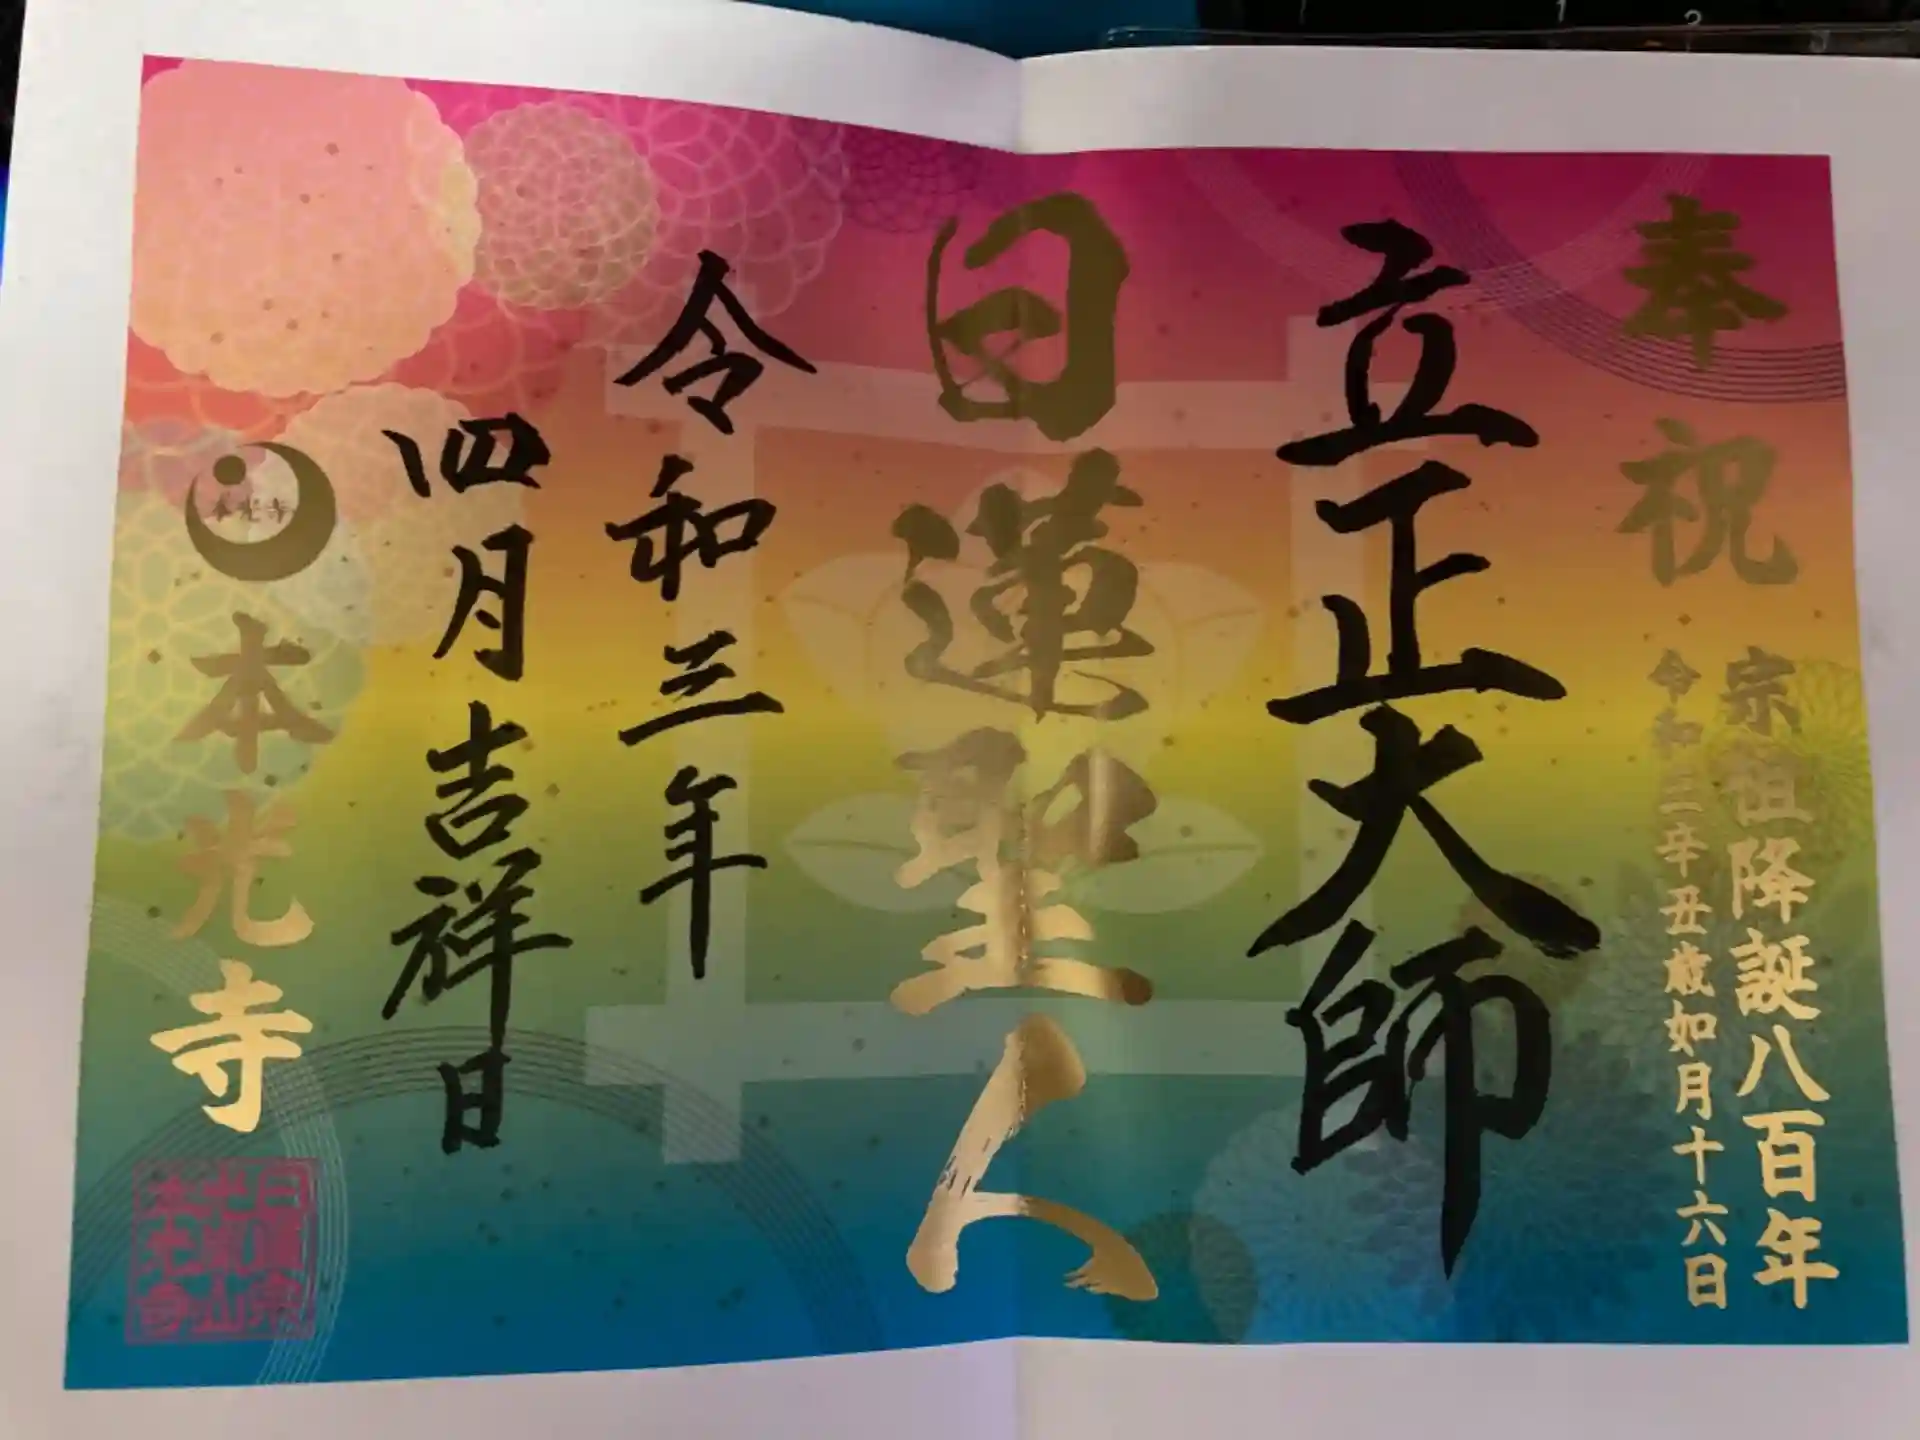 奉祝
宗祖降誕八百年
令和三辛丑歳如月十六日
立正大師
日蓮聖人
令和三年
四月吉祥日
本光寺
本光寺